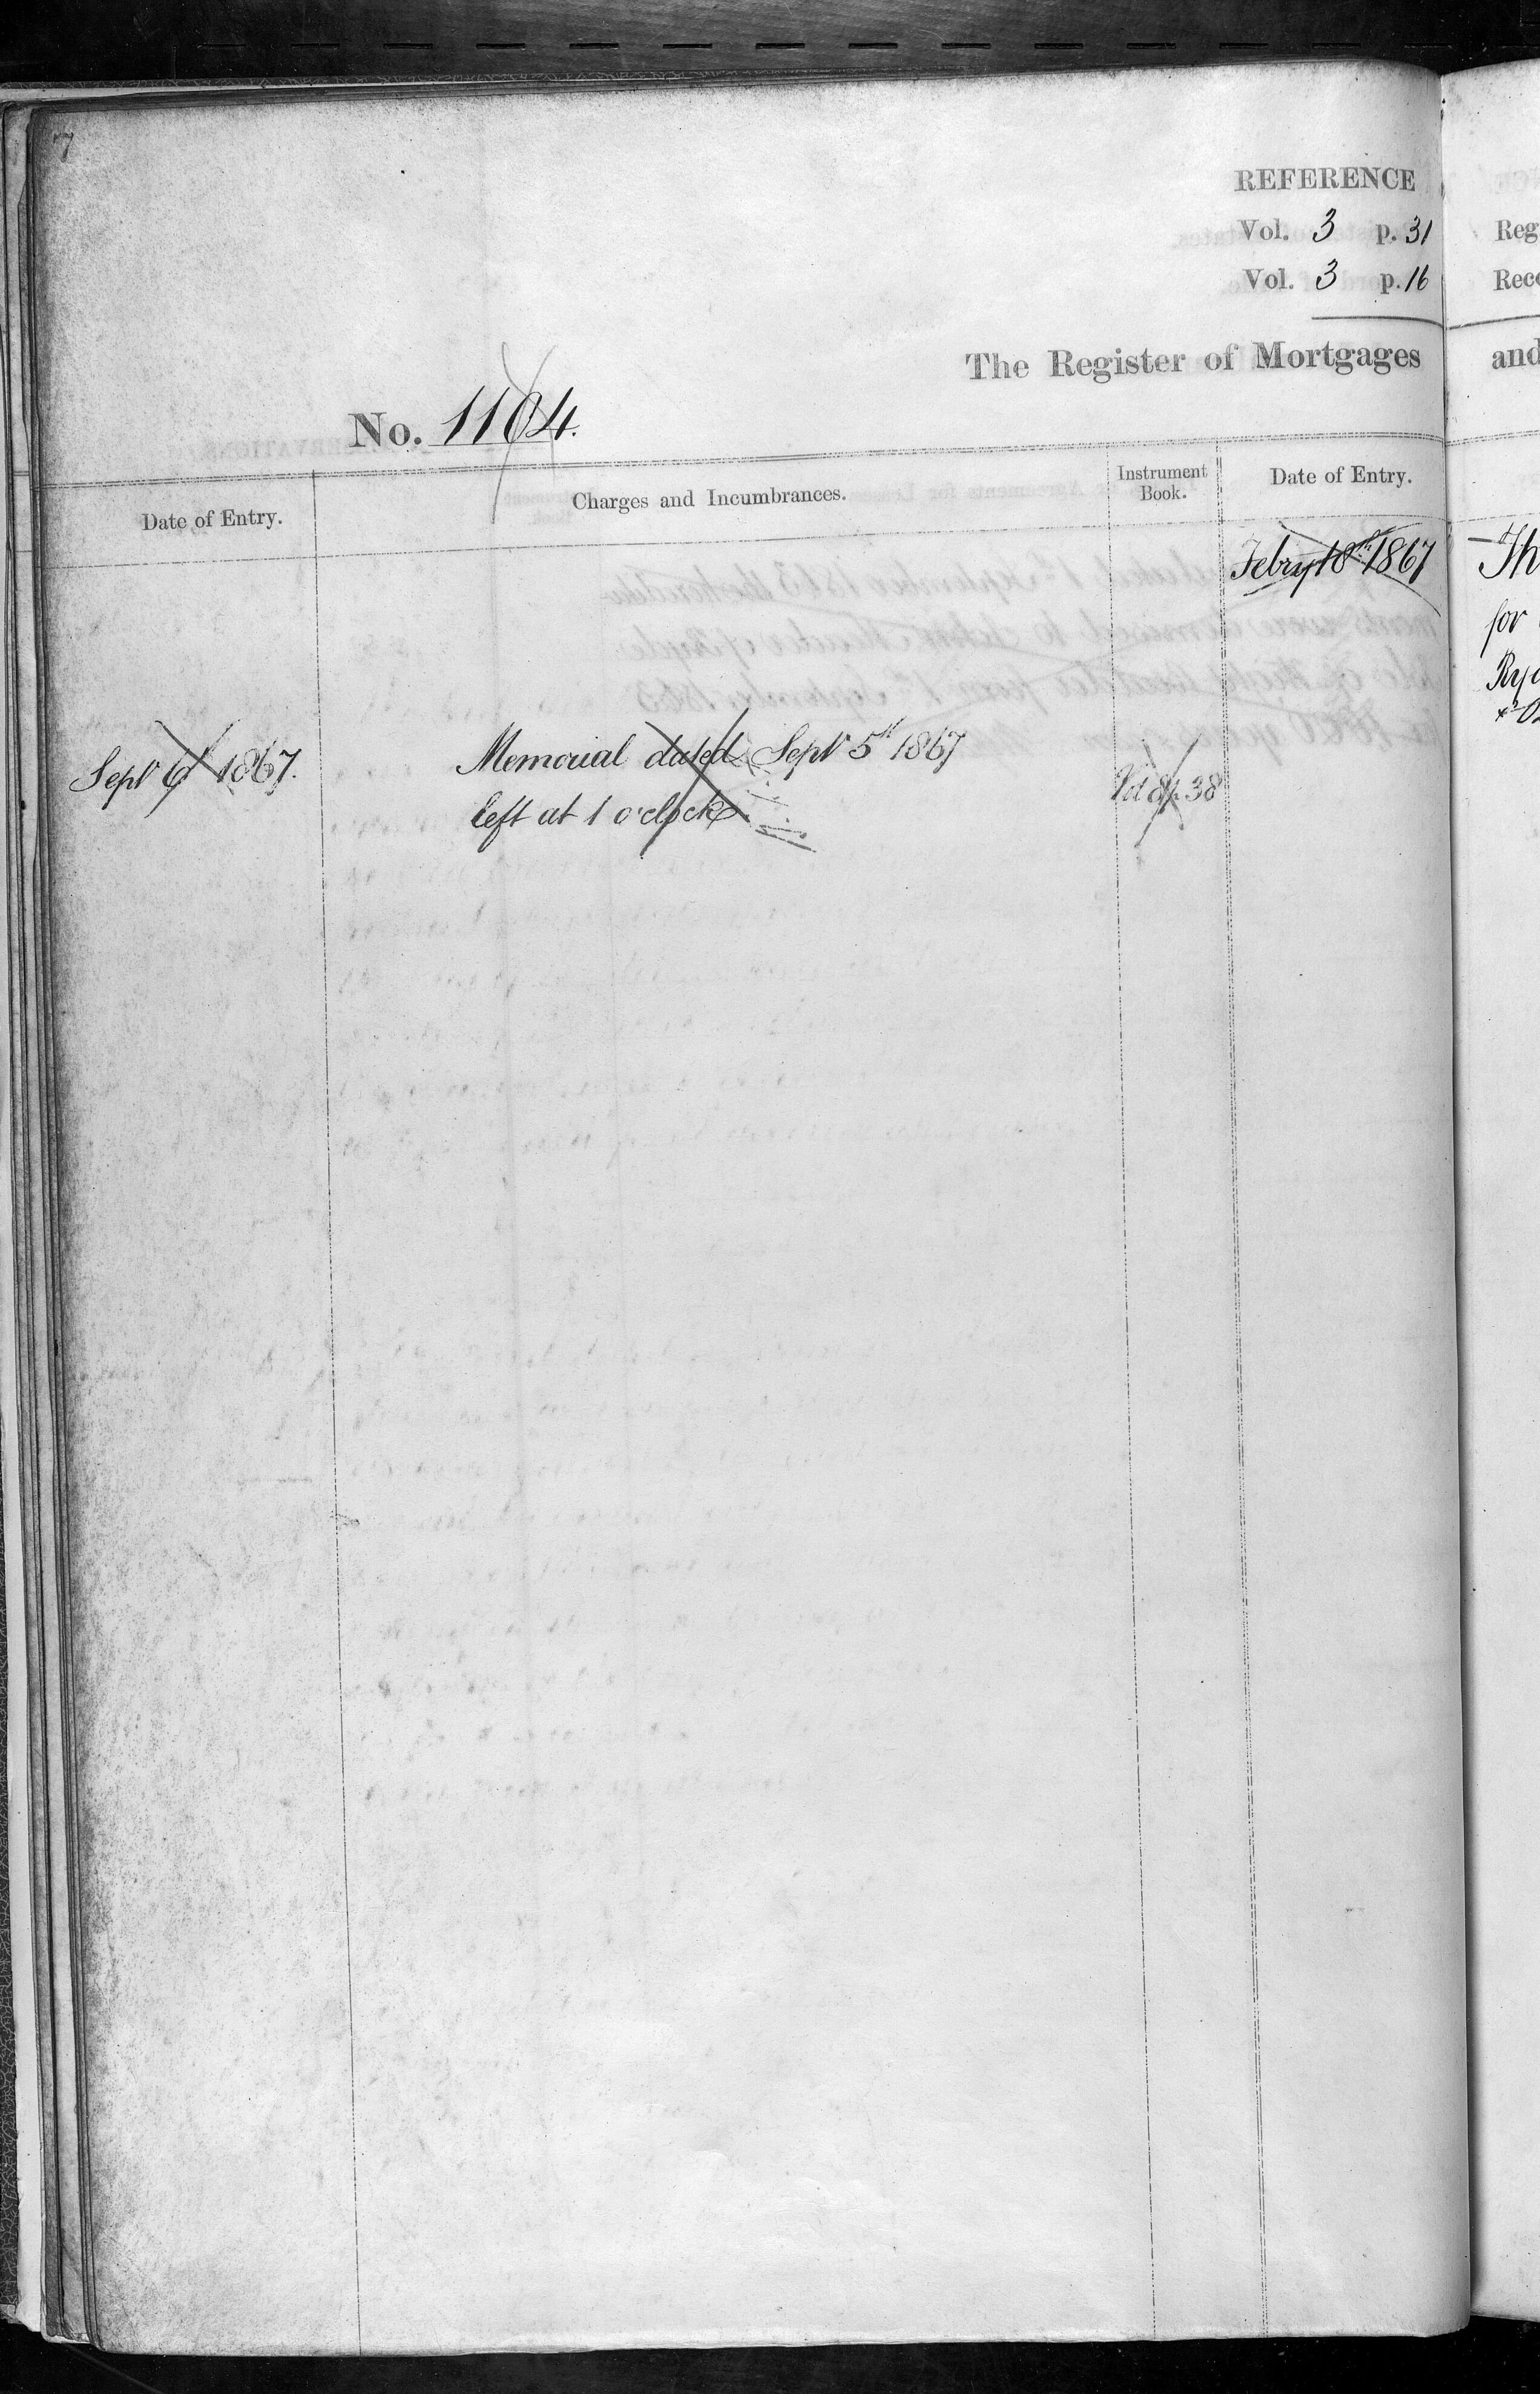 7
REFERENCE
Vol. 3 p. 31
Vol. 3 p. 16
The Register of Mortgages
No. 1104.
Date of Entry.
Charges and Incumbrances.
Instrument
Book.
Date of Entry.
Febry 18th 1867
Sept 6th 1867.
Memorial dated Sept 5th 1867
left at 1 o'clock
Vol 8 p 38
Reg
Reco
and
Th
for
Ryd